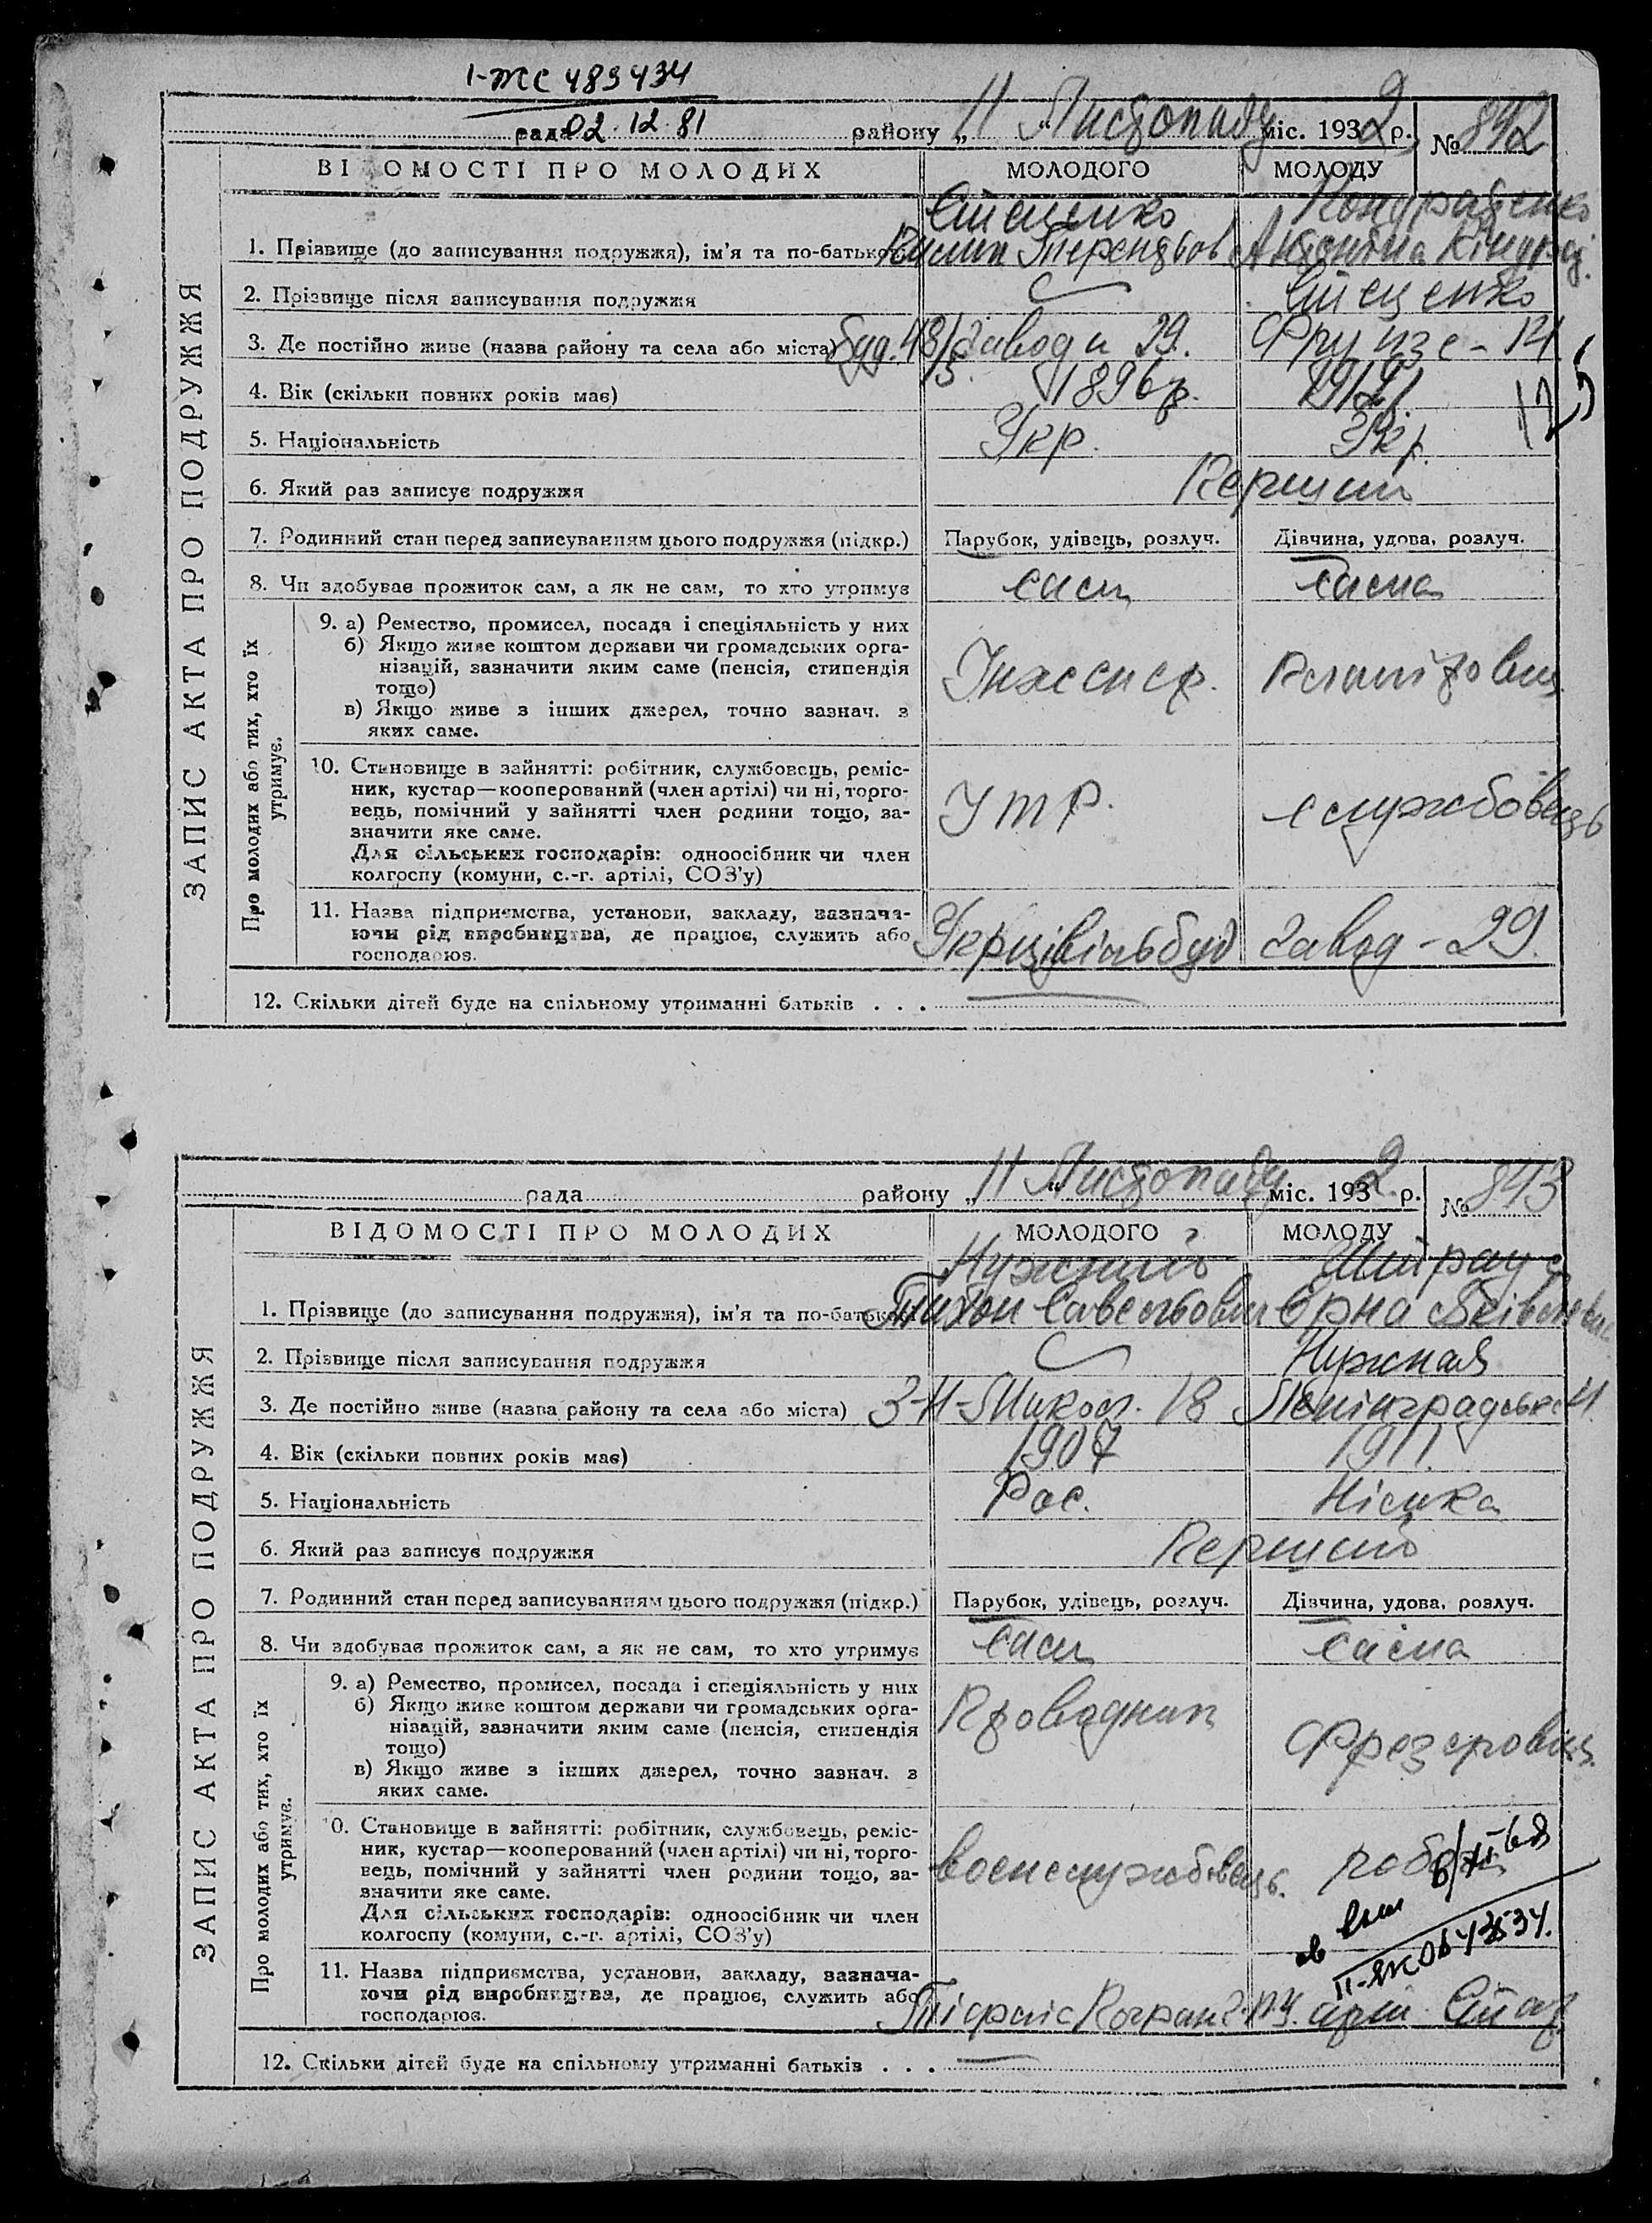 1-ЖС 489434
рада 02.12.81 району „ 11 " Листопаду міс. 1932 р. № 842
ВІДОМОСТІ ПРО МОЛОДИХ МОЛОДОГО МОЛОДУ
Стеценко Кондратенко
1. Прізвище (до записування подружжя), ім'я та по-батькові Пилип Терентьов Антоніна Кіндрат.
2. Прізвище після записування подружжя Стеценко
3. Де постійно живе (назва району та села або міста) буд. 48/5 Завод 29. Фрунзе - 14
4. Вік (скільки повних років має) 1896 р.
5. Національність Укр. Укр.
6. Який раз записує подружжя Перший
7. Родинний стан перед записуванням цього подружжя (підкр.) Парубок, удівець, розлуч. Дівчина, удова, розлуч.
8. Чи здобуває прожиток сам, а як не сам, то хто утримує сам сама
9. а) Ремество, промисел, посада і спеціяльність у них
б) Якщо живе коштом держави чи громадських орга-
нізацій, зазначити яким саме (пенсія, стипендія
тощо)
Інженер. Планіров.
в) Якщо живе з інших джерел, точно зазнач. з
яких саме.
10. Становище в зайнятті: робітник, службовець, реміс-
ник, кустар—кооперований (член артілі) чи ні, торго-
вець, помічний у зайнятті член родини тощо, за-
значити яке саме.
ІТР. службовець
Для сільських господарів: одноосібник чи член
колгоспу (комуни, с.-г. артілі, СОЗ'у)
11. Назва підприємства, установи, закладу, зазнача-
ючи рід виробництва, де працює, служить або
господарює.
Укрцівільбуд завод - 29.
12. Скільки дітей буде на спільному утриманні батьків . . .
ЗАПИС АКТА ПРО ПОДРУЖЖЯ
Про молодих або тих, хто їх
утримує.
рада району „ 11 " Листопаду міс. 1932 р. № 843
ВІДОМОСТІ ПРО МОЛОДИХ МОЛОДОГО МОЛОДУ
Нужний Штраус
1. Прізвище (до записування подружжя), ім'я та по-батькові Тихон Савельович Ерна Яківлевна
2. Прізвище після записування подружжя Нужная
3. Де постійно живе (назва району та села або міста) 3-Н-Микол. 18 Ленінградська
4. Вік (скільки повних років має) 1907 1911.
5. Національність Рос. Німка
6. Який раз записує подружжя Перший
7. Родинний стан перед записуванням цього подружжя (підкр.) Парубок, удівець, розлуч. Дівчина, удова, розлуч.
8. Чи здобуває прожиток сам, а як не сам, то хто утримує сам сама
9. а) Ремество, промисел, посада і спеціяльність у них
б) Якщо живе коштом держави чи громадських орга-
нізацій, зазначити яким саме (пенсія, стипендія
тощо)
Проводник Фрезеровщ.
в) Якщо живе з інших джерел, точно зазнач. з
яких саме.
10. Становище в зайнятті: робітник, службовець, реміс-
ник, кустар—кооперований (член артілі) чи ні, торго-
вець, помічний у зайнятті член родини тощо, за-
значити яке саме.
военслужбовець.
Для сільських господарів: одноосібник чи член
колгоспу (комуни, с.-г. артілі, СОЗ'у)
11. Назва підприємства, установи, закладу, зазнача-
ючи рід виробництва, де працює, служить або
господарює.
12. Скільки дітей буде на спільному утриманні батьків . . .
ЗАПИС АКТА ПРО ПОДРУЖЖЯ
Про молодих або тих, хто їх
утримує.